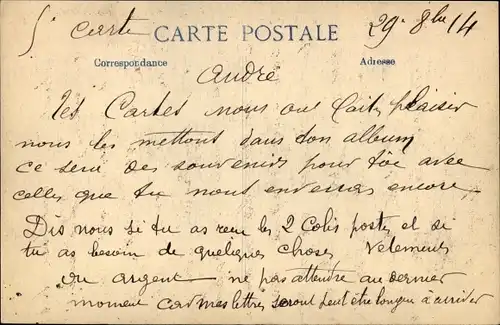 5e carte CARTE POSTALE 29. 8bre 14
Correspondance Adresse
André
tes Cartes nous ont fait plaisir
nous les mettons dans ton album
ce sera des souvenirs pour toi avec
celles que tu nous enverras encore.
Dis nous si tu as reçu les 2 colis postes et si
tu as besoin de quelques choses vetements
ou argent ne pas attendre au dernier
moment car mes lettres seront peut être longue a arriver